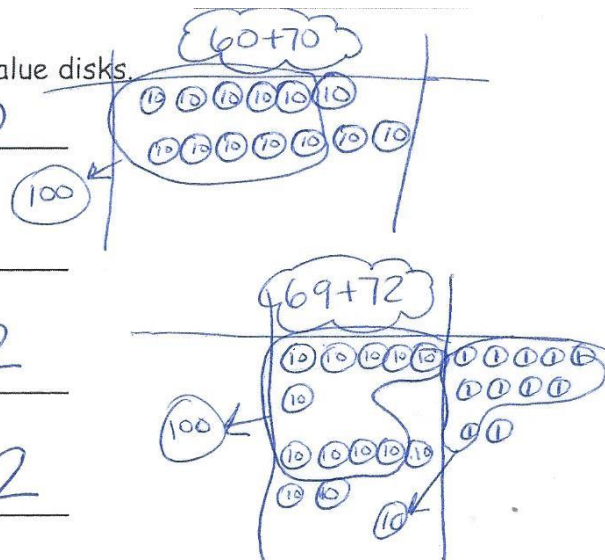 60+70
alue disks.
10 10 10 10 10 10
10 10 10 10 10 10 10
100
69+72
2
10 10 10 10 10 1 1 1 1 1
10 1 1 1 1
100
1 1
10 10 10 10 10
2
10 10
10